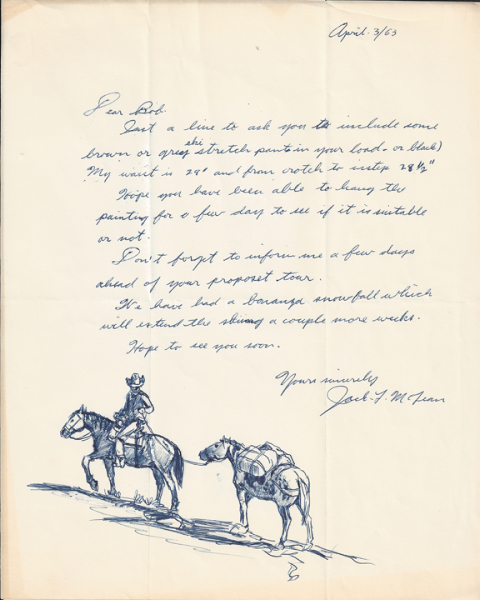 April. 3/63
Dear Bob.
Just a line to ask you to include some
ski
brown or grey stretch pants in your load. or black)
My waist is 29" and from crotch to instep 28½"
Hope you have been able to hang the
painting for a few day to see if it is suitable
or not.
Don't forget to inform me a few days
ahead of your proposet tour.
We have had a bonanza snowfall which
will extend the skiing a couple more weeks.
Hope to see you soon.
Yours sincerely
Jack. L. McLean